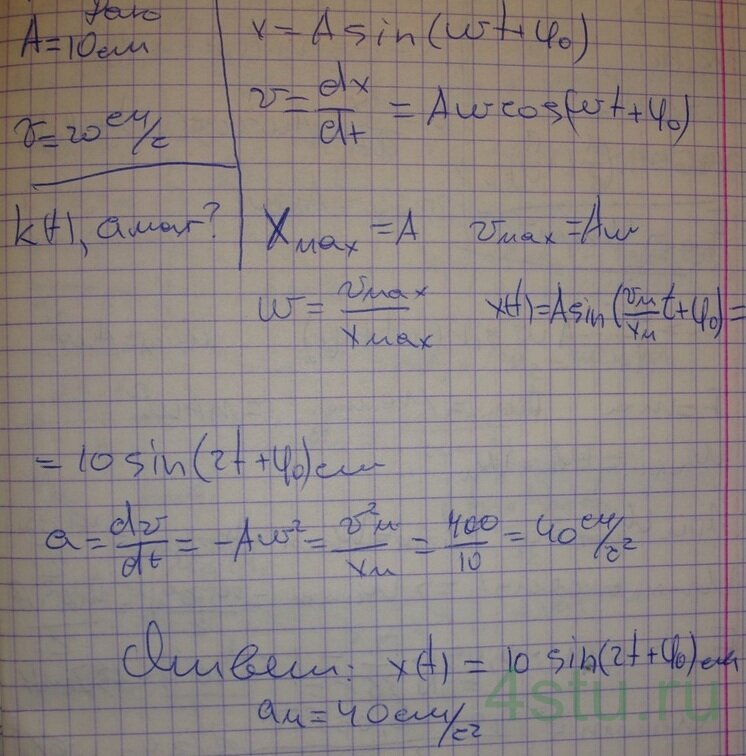 Дано
A=10см
v=20 см/с
x(t), aмах?
x=A sin(ωt+φ₀)
v=dx/dt=Aω cos(ωt+φ₀)
Xмах=A vмах=Aω
ω=vмах/xмах x(t)=A sin(vм/xм t+φ₀)=
=10 sin(2t+φ₀)см
a=dv/dt=-Aω²=v²м/xм=400/10=40 см/с²
Ответ: x(t)=10 sin(2t+φ₀)см
aм=40 см/с²
4stu.ru